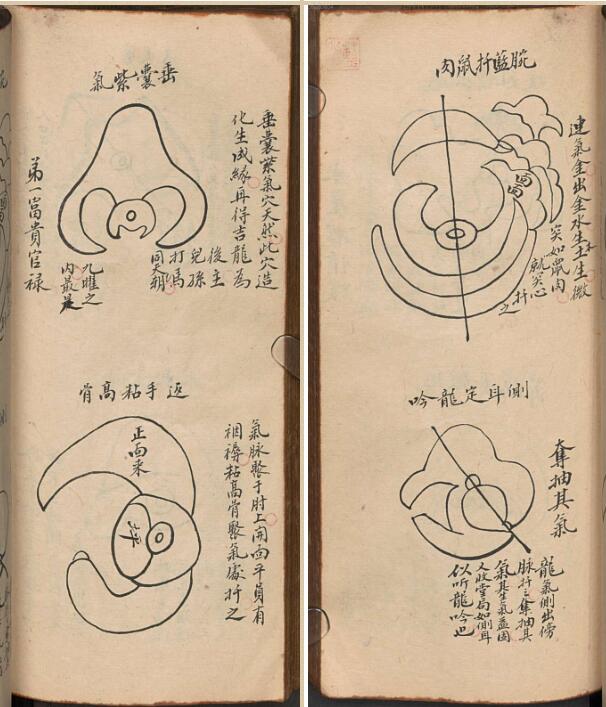 腕藍扦鼠肉
連氣金出金水生土生微
突如鼠肉
就突心
扦之
側耳定龍吟
奪抽其氣
龍氣側出傍
脉扦之奪抽其
氣基生氣益固
又收堂局如側耳
似听龍吟也
垂囊紫氣
垂囊紫氣穴天然此穴造
化生成緣再得吉龍為
後主
兒孫
打馬
同天朝
九曜之
内最是
弟一富貴官祿
返手粘高骨
氣脉聚于肘上開面平員有
裀褥粘高骨聚氣處扦之
正面来
坪